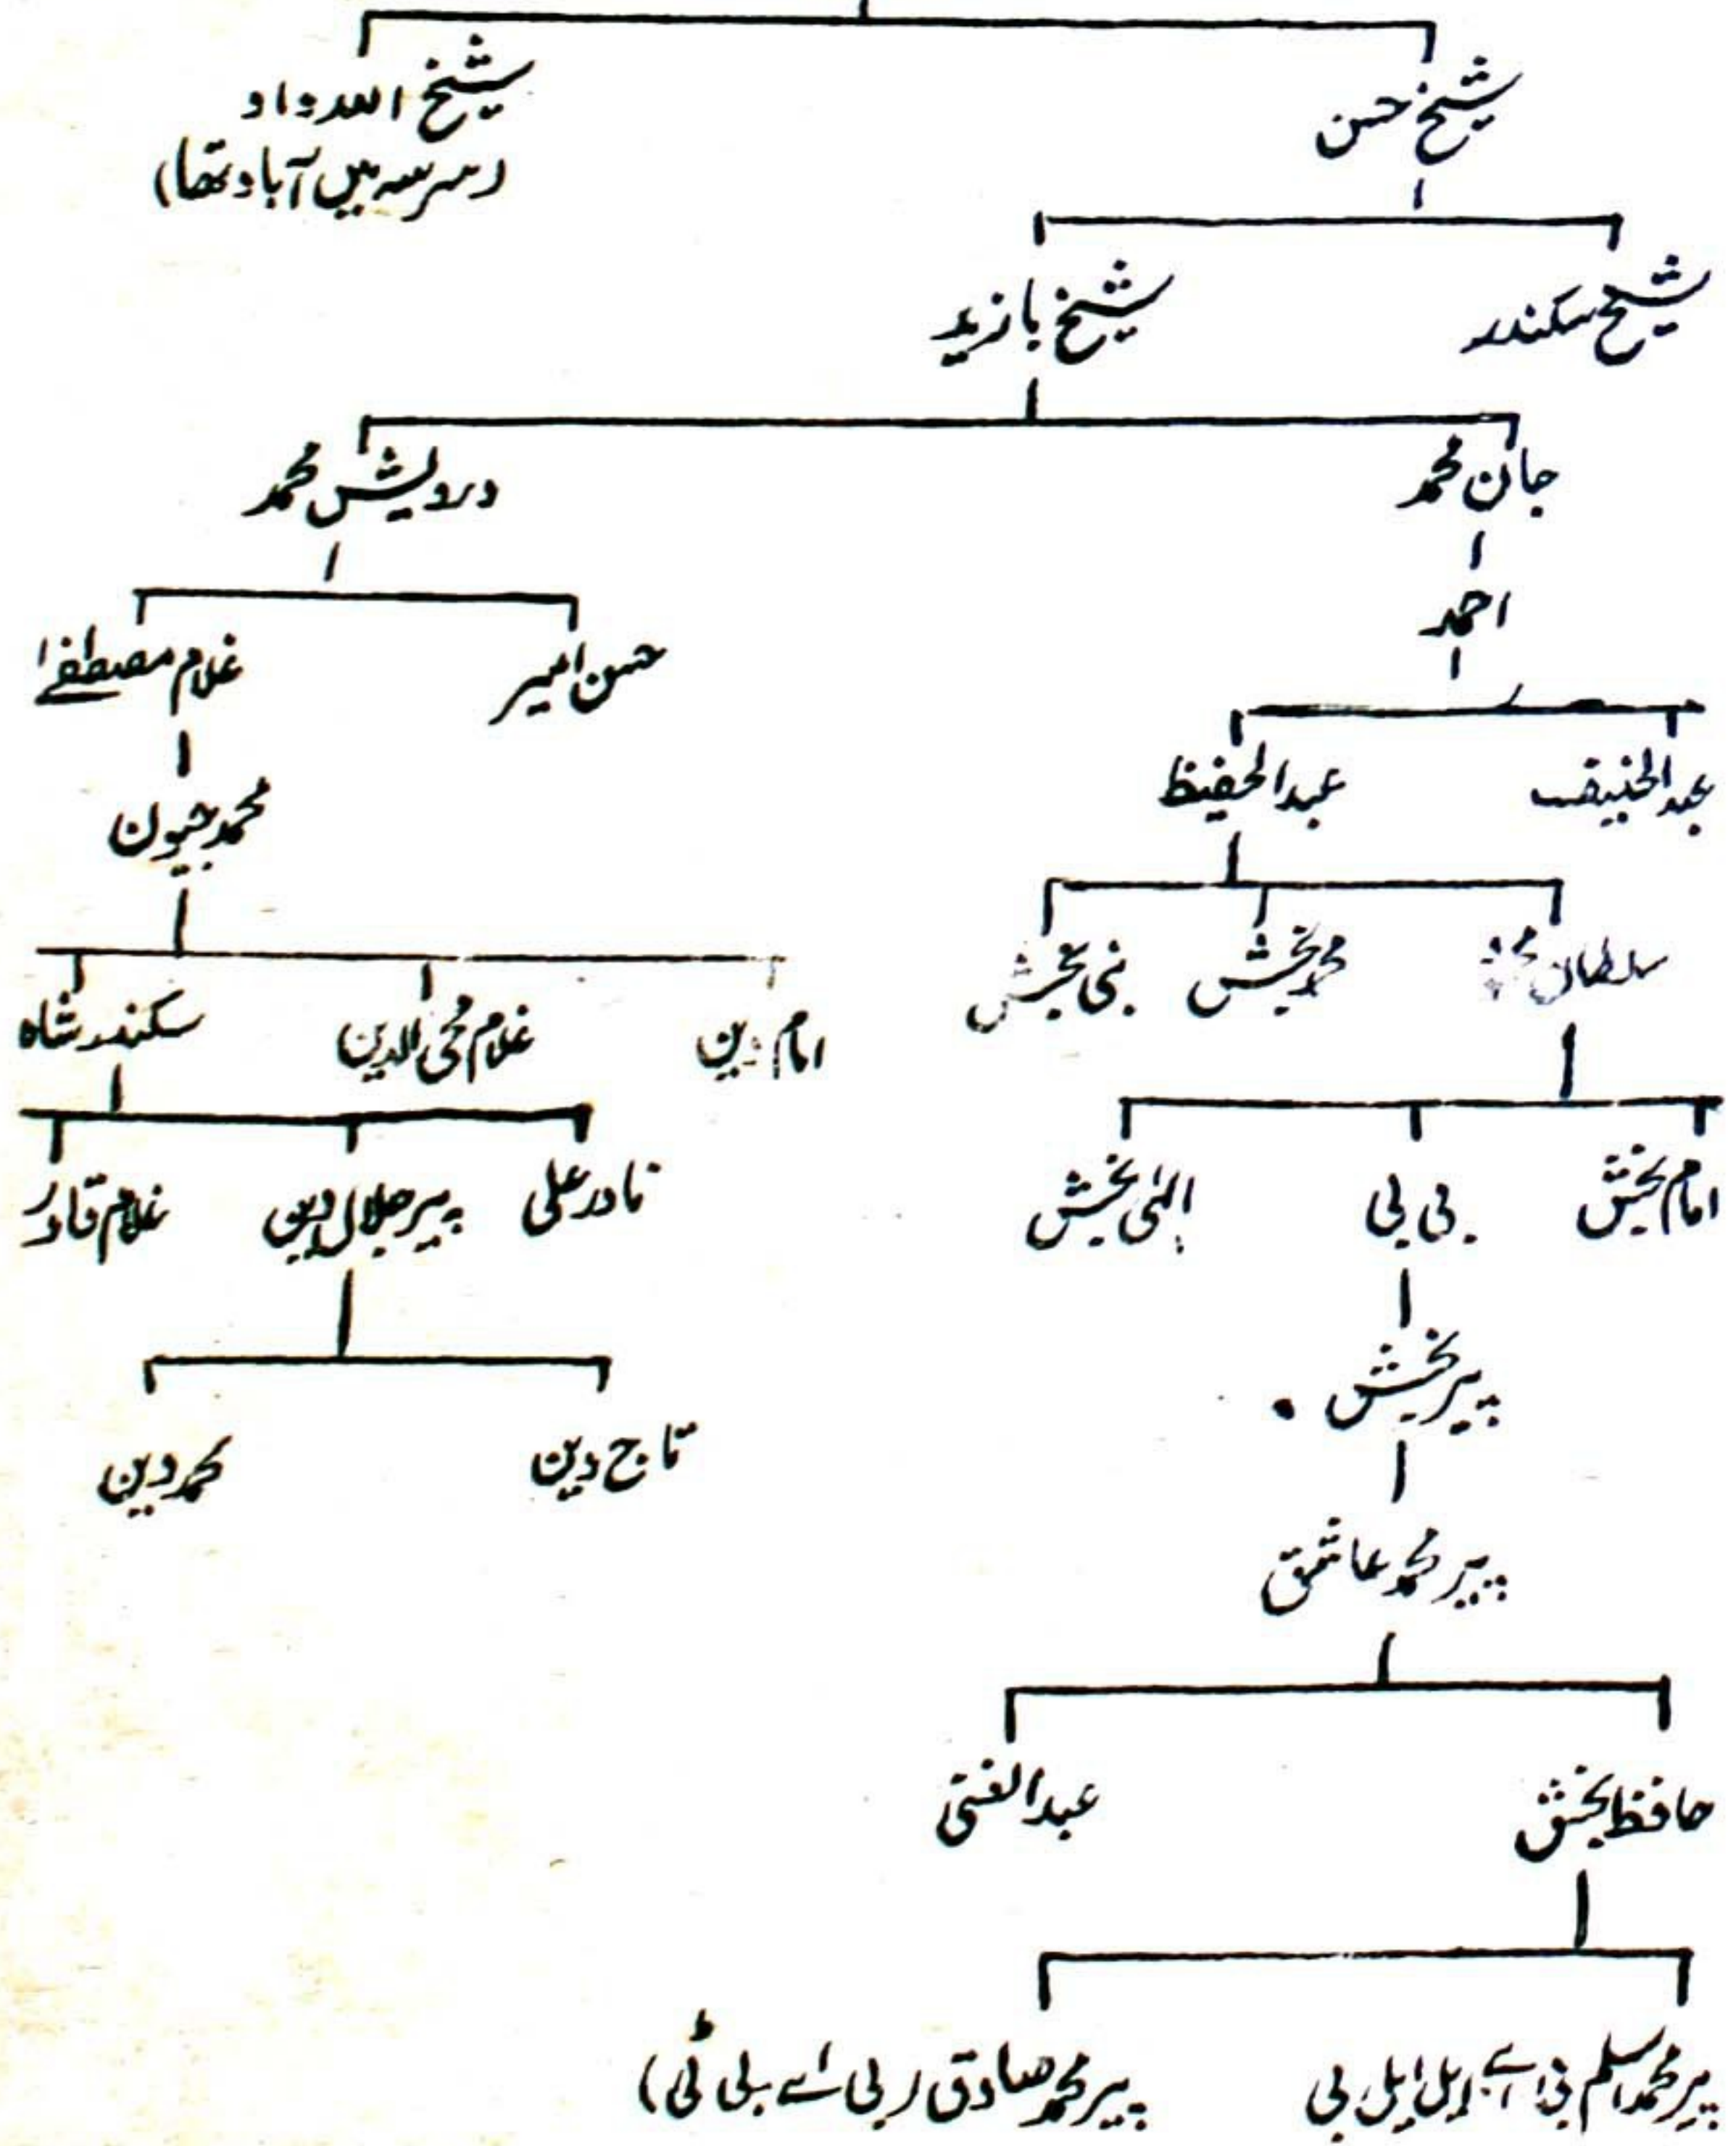 شیخ حسن
شیخ اللہ داد
(سرسہ میں آباد تھا)
شیخ سکندر
شیخ بازید
جان محمد
درویش محمد
احمد
حسن امیر
غلام مصطفےٰ
عبدالحنیف
عبدالحفیظ
محمد جیون
سلطان
محمد بخش
نبی بخش
امام دین
غلام محی الدین
سکندر شاہ
امام بخش
بی بی
الہٰی بخش
نادر علی
پیر جلال دین
غلام قادر
پیر بخش
تاج دین
محمد دین
پیر محمد عاشق
حافظ بخش
عبدالغنی
پیر محمد اسلم بی اے، ایل ایل بی
پیر محمد صادق (بی اے بی ٹی)